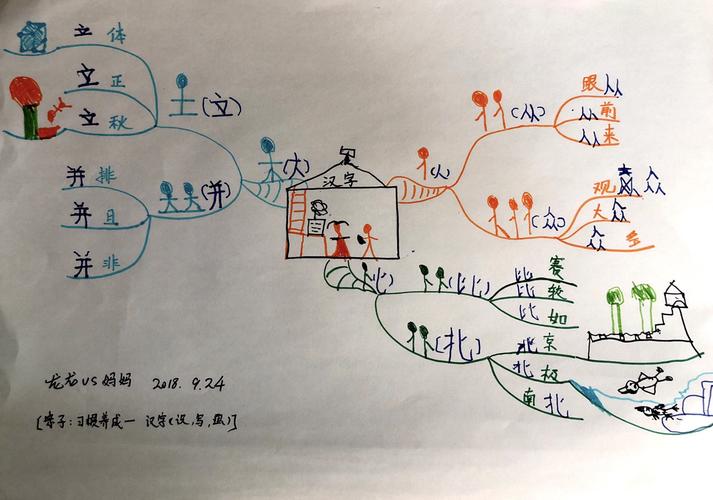 立 体
立 正
立 秋
(立)
并 排
并 且
并 非
(并)
(大)
汉字
(人)
(从)
跟从
从前
从来
(众)
观众
大众
众多
(匕)
(比)
比赛
比较
比如
(北)
北京
北极
南北
龙龙VS妈妈 2018.9.24
[亲子:习惯养成一 汉字(识,写,组)]